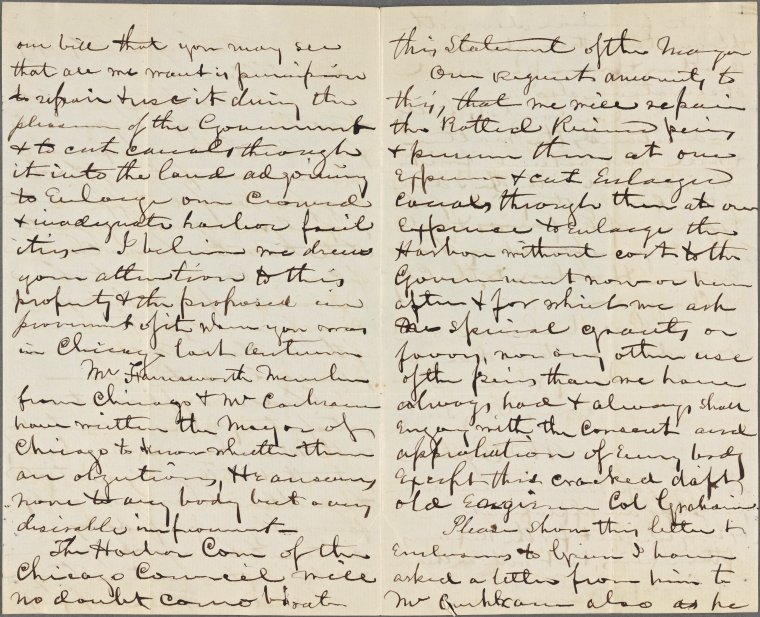 our bill that you may see
that all we want is permission
to repair & use it during the
pleasure of the Government
& to cut canals through
it into the land adjoining
to Enlarge our Crowded
& inadequate harbor facil
ities – I believe we drew
your attention to this
property & the proposed im
provement of it when you was
in Chicago last Autumn
Mr Farnsworth Member
from Chicago & Mr Cochran
have written the Mayor of
Chicago to know whether there
are objections, He answers
none to any body but a very
desirable improvment –
The Harbor Com of the
Chicago Council will
no doubt corroborate
this Statement of the Mayor
Our request amounts to
this, that we will repair
the Rotted Ruined piers
& preserve them at our
Expense & cut Enlarged
canals through them at our
Expense to Enlarge the
Harbor without cost to the
Government now or here
after & for which we ask
no special grants or
favors, nor any other use
of the piers than we have
always had & always shall
Enjoy with the consent and
approbation of Every body
Except this cracked daft
old Engineer Col Graham
Please show this letter &
Enclosures to Green I have
asked a letter from him to
Mr also as he